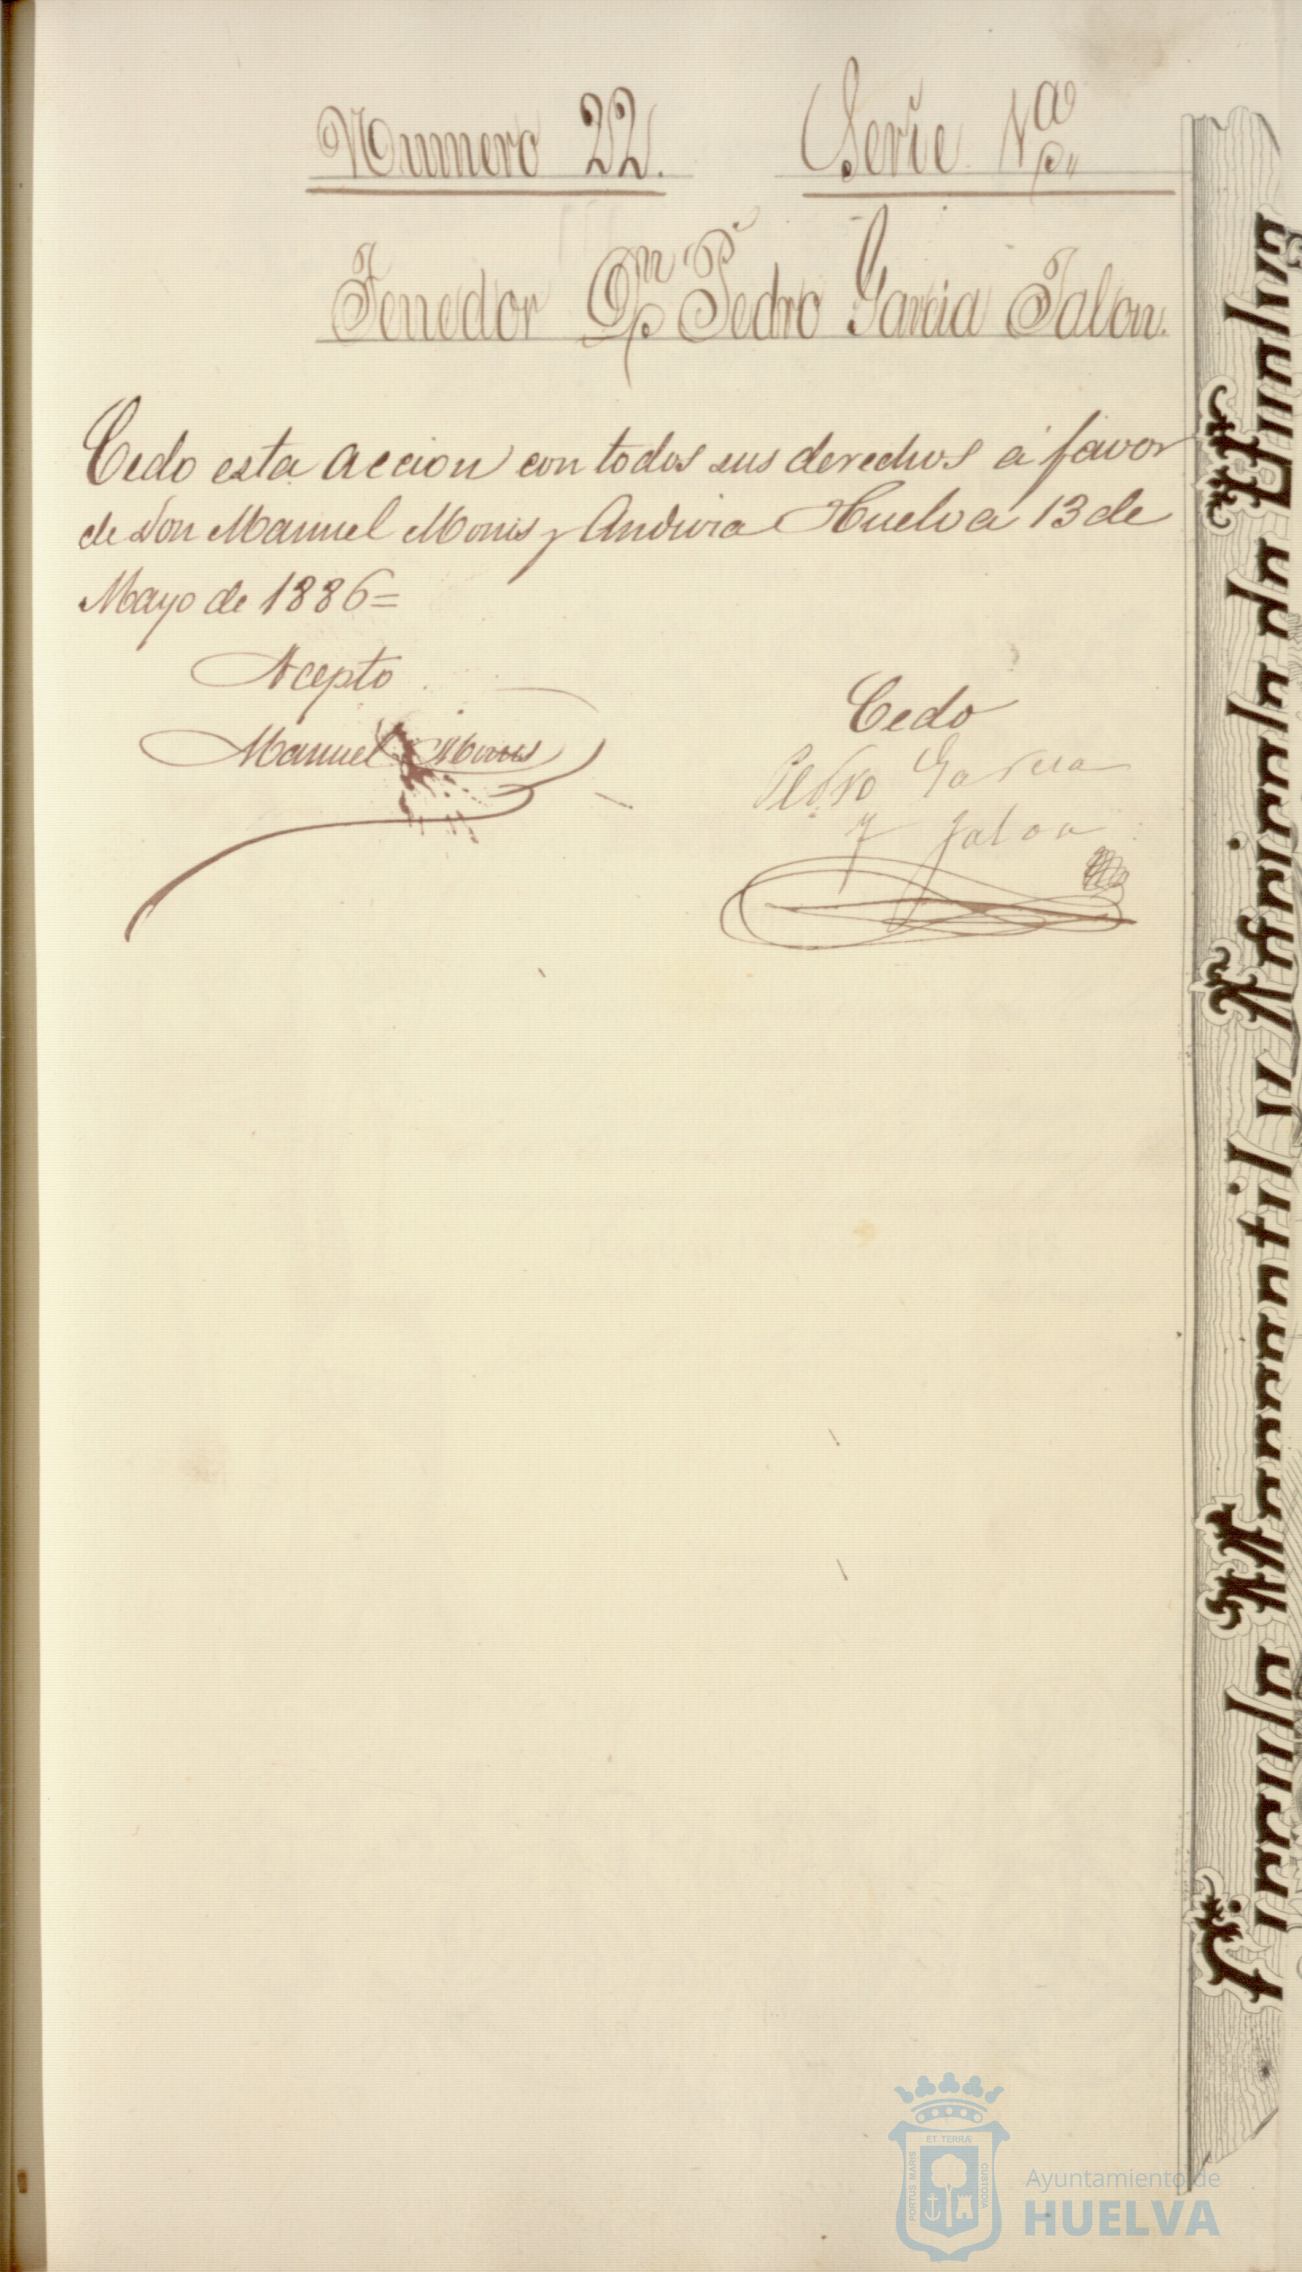 Numero 22. Serie A.ª
Tenedor Dn Pedro Garcia Jalon.
Cedo esta accion con todos sus derechos á favor
de Don Manuel Monis y Andivia Huelva 13 de
Mayo de 1886=
Acepto
Cedo
Manuel Monis
Pedro Garcia
y Jalon
Circulo Mercantil y Agricola de Huelva
ET TERRÆ
PORTUS MARIS
CUSTODIA
Ayuntamiento de
HUELVA